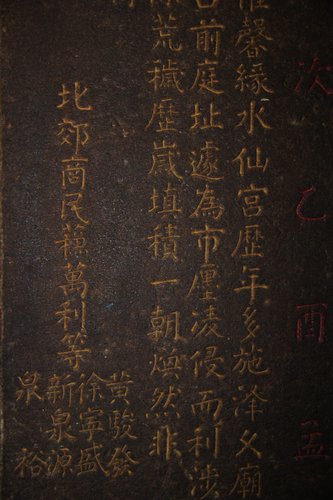 次乙酉孟
馨緣水仙宮歷年多施澤久廟
前庭址遽為市廛凌侵而利涉
荒穢歷歲填積一朝煥然非
北郊商民蘇萬利等
黃駿發
徐寧盛
新泉源
泉裕